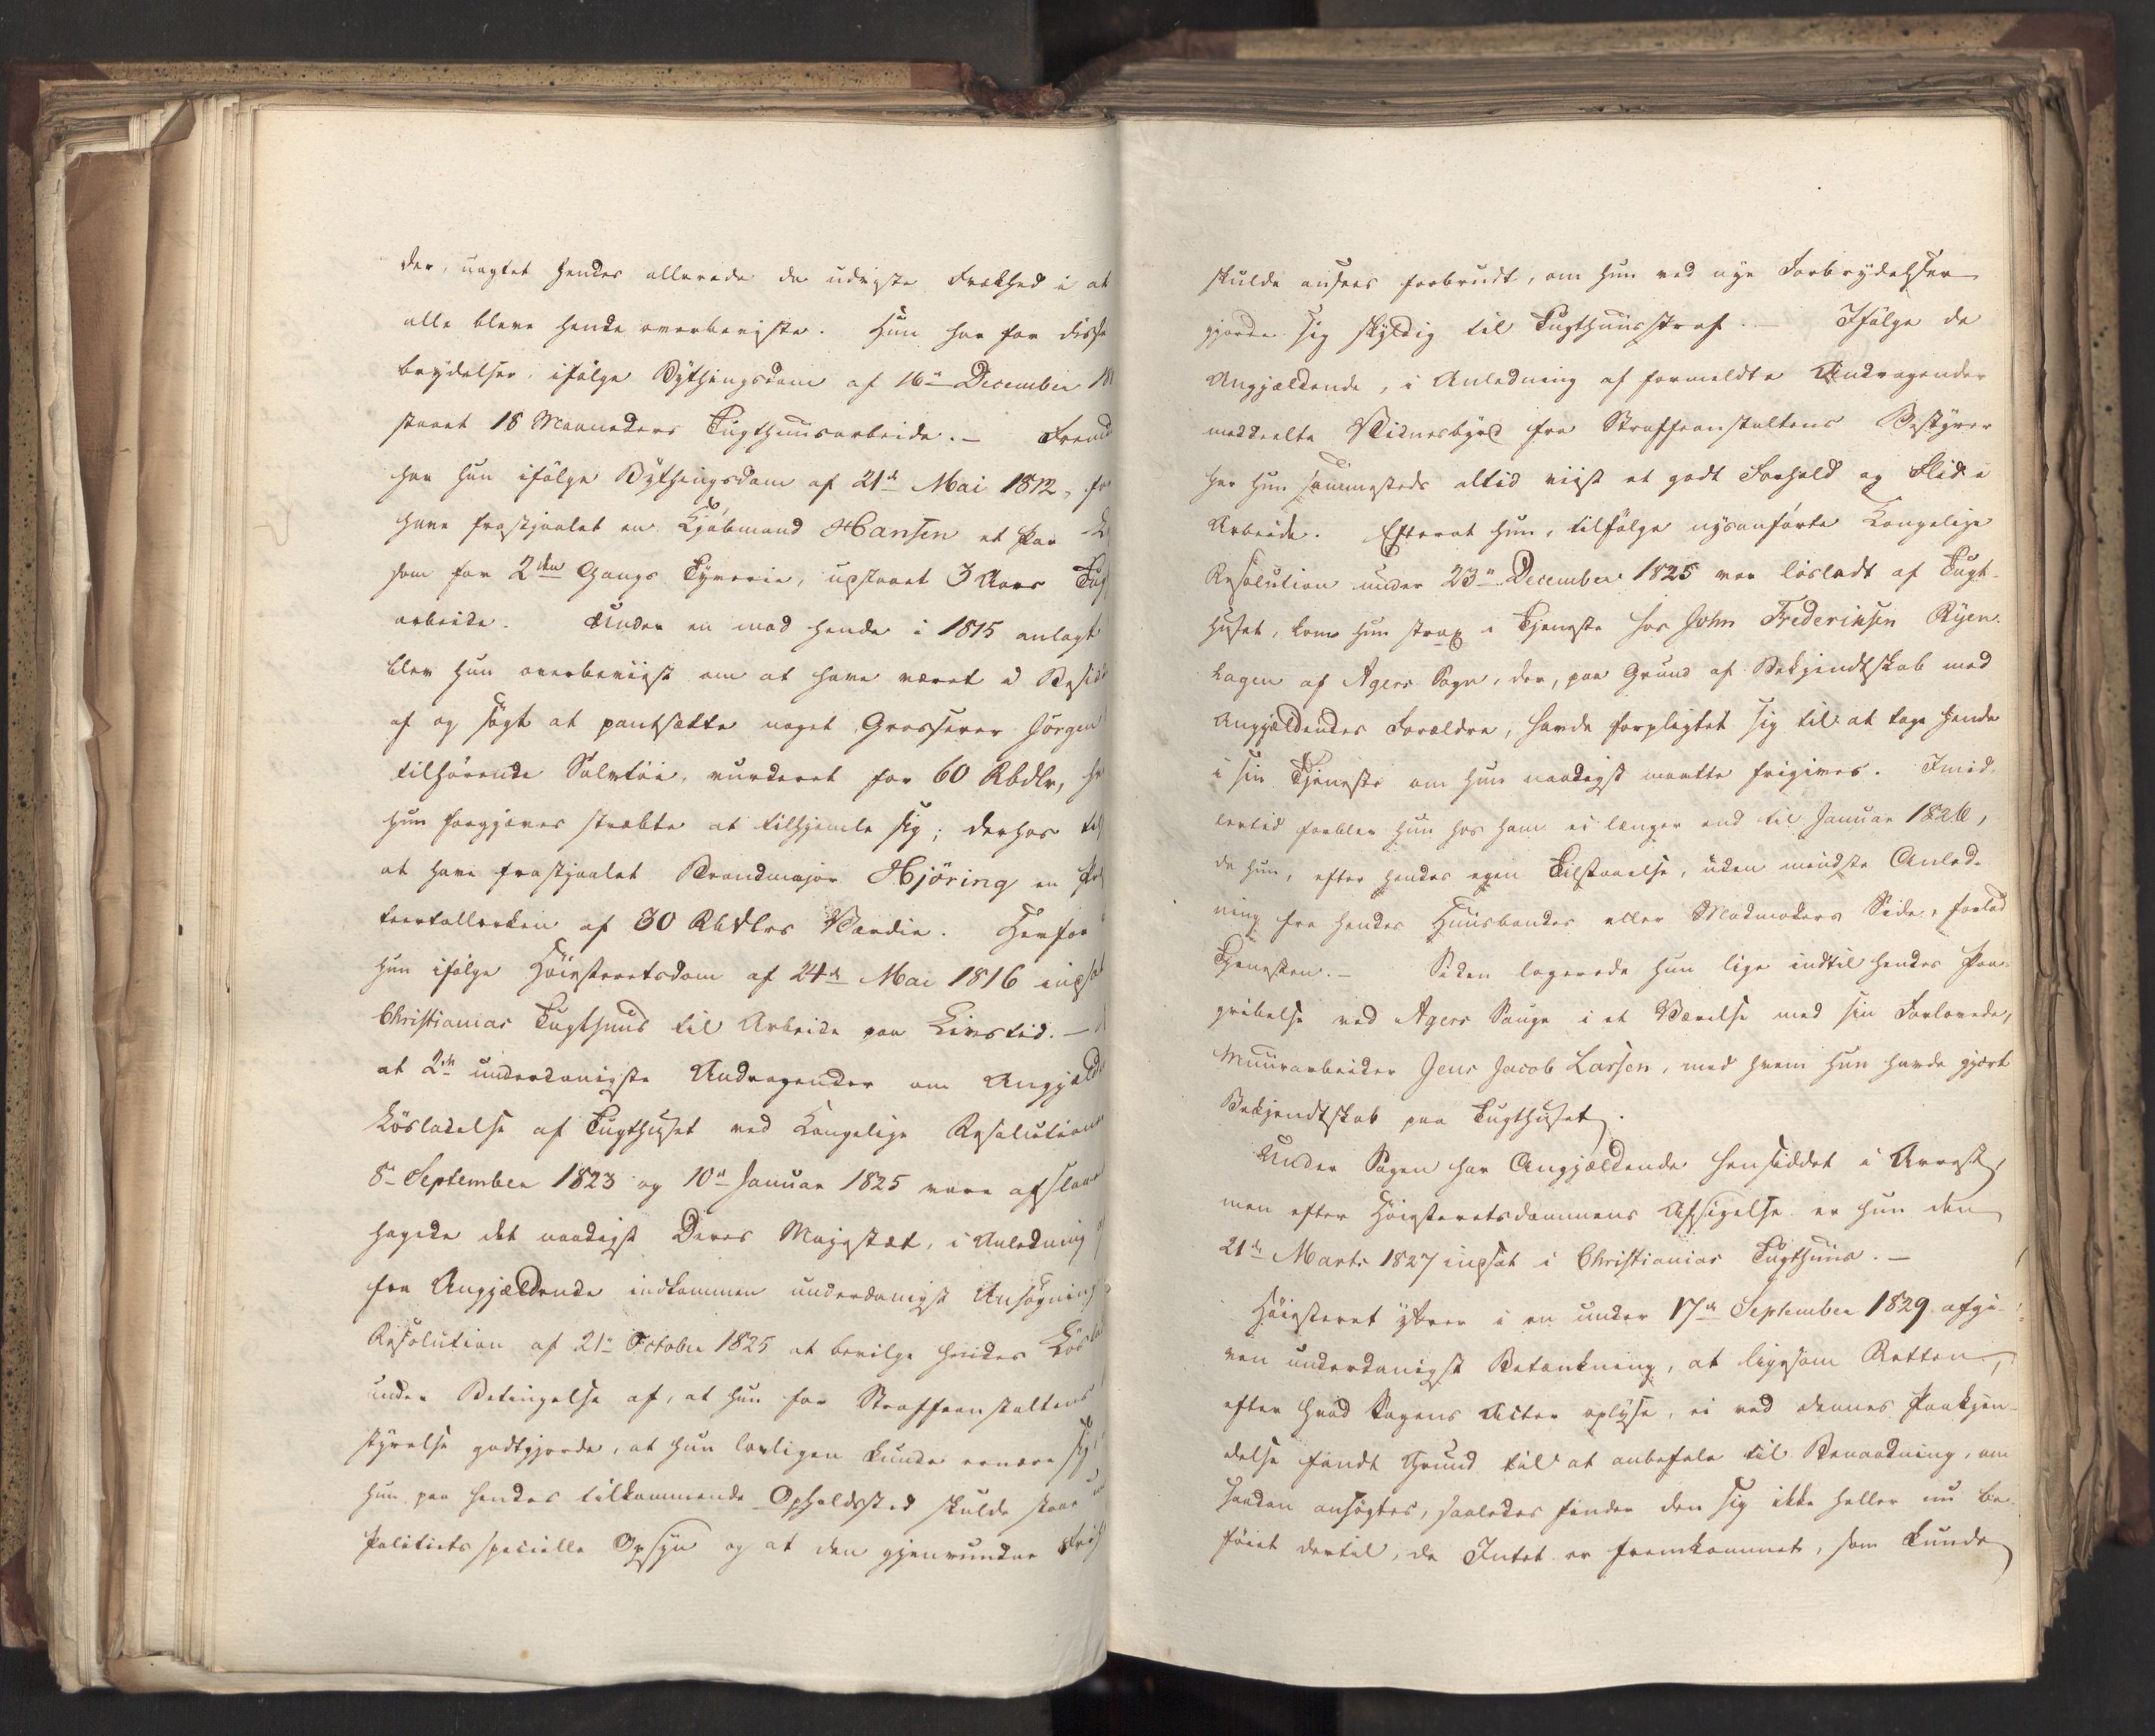 der, uagtet hendes allerede da udviste Frækhed i at
alle bleve hende overbeviste. Hun har for disse
brydelser, ifölge Bythingsdom af 16de December 18
staaet 18 Maaneders Tugthuusarbeide. – Frem
har hun ifölge Bythingsdom af 21de Mai 1812, for
have frastjaalet en Kjöbmand Hansen et Par
som for 2den Gangs Tyverie, udstaaet 3 Aars Tugt
arbeide. Under en mod hende i 1815 anlagt
blev hun overbeviist om at have været i Besid
af og sögt at pantsætte noget Grosserer Jörgen
tilhörende Sölvtöi, vurderet for 60 Rbdlr, h
hun forgjæves stræbte at tilhjemle sig; derhos til
at have frastjaalet Brandmajor Hjöring en Præ
teertallerken af 30 Rbdlrs Værdie. Herfor
hun ifölge Höiesteretsdom af 24de Mai 1816 indsat
Christianias Tugthuus til Arbeide paa Livstid. –
at 2de underdanigste Andragender om Angjælde
Löslatelse af Tugthuset ved Kongelige Resolutione
8de September 1823 og 10de Januar 1825 vare afslaae
hagede det naadigst Deres Majestæt, i Anledning
fra Angjældende indkommen underdanigst Ansögning
Resolution af 21de October 1825 at bevilge hendes Lösla
under Betingelse af, at hun for Straffeanstaltens
styrelse godtgjorde, at hun lovligen kunde ernære sig,
hun paa hendes tilkommende Opholdssted skulde staae
Politiets specielle Opsyn og at den gjenvundne Frih
skulde ansees forbrudt, om hun ved nye Forbrydelser
gjorde sig skyldig til Tugthuusstraf. – Ifölge de
Angjældende, i Anledning af formeldte Andragender
meddeelte Vidnesbyrd fra Straffeanstaltens Bestyrer
har hun sammesteds altid viist et godt Forhold og Flid i
Arbeide. Efterat hun, tilfölge nysanförte Kongelige
Resolution under 23de December 1825 var lösladt af Tugt-
huset, kom hun strax i Tjeneste hos John Frederiksen Ryen-
hagen af Agers Sogn, der, paa Grund af Bekjendtskab med
Angjældendes Forældre, havde forpligtet sig til at tage hende
i sin Tjeneste om hun naadigst maatte frigives. Imid-
lertid forblev hun hos ham ei længer end til Januar 1826,
da hun, efter hendes egen Tilstaaelse, uden mindste Anled-
ning fra hendes Huusbondes eller Madmoders Side, forlod
Tjenesten. – Siden logerede hun lige indtil hendes Paa-
gribelse ved Agers Sauge i et Værelse med sin Forlovede,
Muurarbeider Jens Jacob Larsen, med hvem hun havde gjort
Bekjendtskab paa Tugthuset.
Under Sagen har Angjældende hensiddet i Arrest,
men efter Höiesteretsdommens Afsigelse er hun den
21de Marts 1827 indsat i Christianias Tugthuus. –
Höiesteret yttrer i en under 17de September 1829 afgi-
ven underdanigst Betænkning, at ligesom Retten,
efter hvad Sagens Acter oplyse, ei ved dennes Paakjen-
delse fandt Grund til at anbefale til Benaadning, om
saadan ansögtes, saaledes finder den sig ikke heller nu be-
föiet dertil, da Intet er fremkommet, som kunde